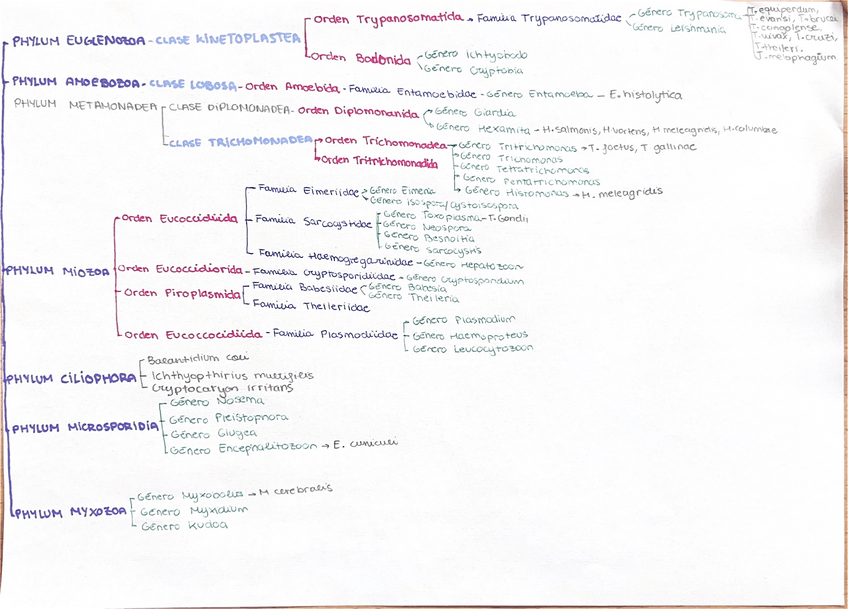 Orden Trypanosomatida → Familia Trypanosomatidae Género Trypanosoma T. equiperdum,
T. evansi, T. brucei
Género Leishmania T. congolense
T. vivax, T. cruzi,
T. theileri,
T. melophagium
PHYLUM EUGLENOZOA - CLASE KINETOPLASTEA
Orden Bodonida Género Ichtyobodo
Género Cryptobia
PHYLUM AMOEBOZOA - CLASE LOBOSA - Orden Amoebida - Familia Entamoebidae - Género Entamoeba - E. histolytica
PHYLUM METAMONADEA CLASE DIPLOMONADEA - Orden Diplomonanida Género Giardia
Género Hexamita - H. salmonis, H vortens, H meleagridis, H. columbae
CLASE TRICHOMONADEA Orden Trichomonadea Género Tritrichomonas → T. foetus, T gallinae
Orden Tritrichomonadida Género Trichomonas
Género Tetratrichomonas
Género Pentatrichomonas
Género Histomonas → H. meleagridis
Familia Eimeriidae Género Eimeria
Género Isospora/cystoisospora
Orden Eucoccidiida Familia Sarcocystidae Género Toxoplasma - T. Gondii
Género Neospora
Género Besnoitia
Género Sarcocystis
Familia Haemogregarinidae - Género Hepatozoon
PHYLUM MIOZOA Orden Eucoccidiorida - Familia Cryptosporidiidae - Género Cryptosporidium
Orden Piroplasmida Familia Babesiidae Género Babesia
Género Theileria
Familia Theileriidae
Orden Eucoccocidiida - Familia Plasmodiidae Género Plasmodium
Género Haemoproteus
Género Leucocytozoon
PHYLUM CILIOPHORA Balantidium coli
Ichthyopthirius multifiliis
Cryptocaryon irritans
PHYLUM MICROSPORIDIA Género Nosema
Género Pleistophora
Género Glugea
Género Encephalitozoon → E. cuniculi
PHYLUM MYXOZOA Género Myxobolus → M cerebralis
Género Myxidium
Género Kudoa